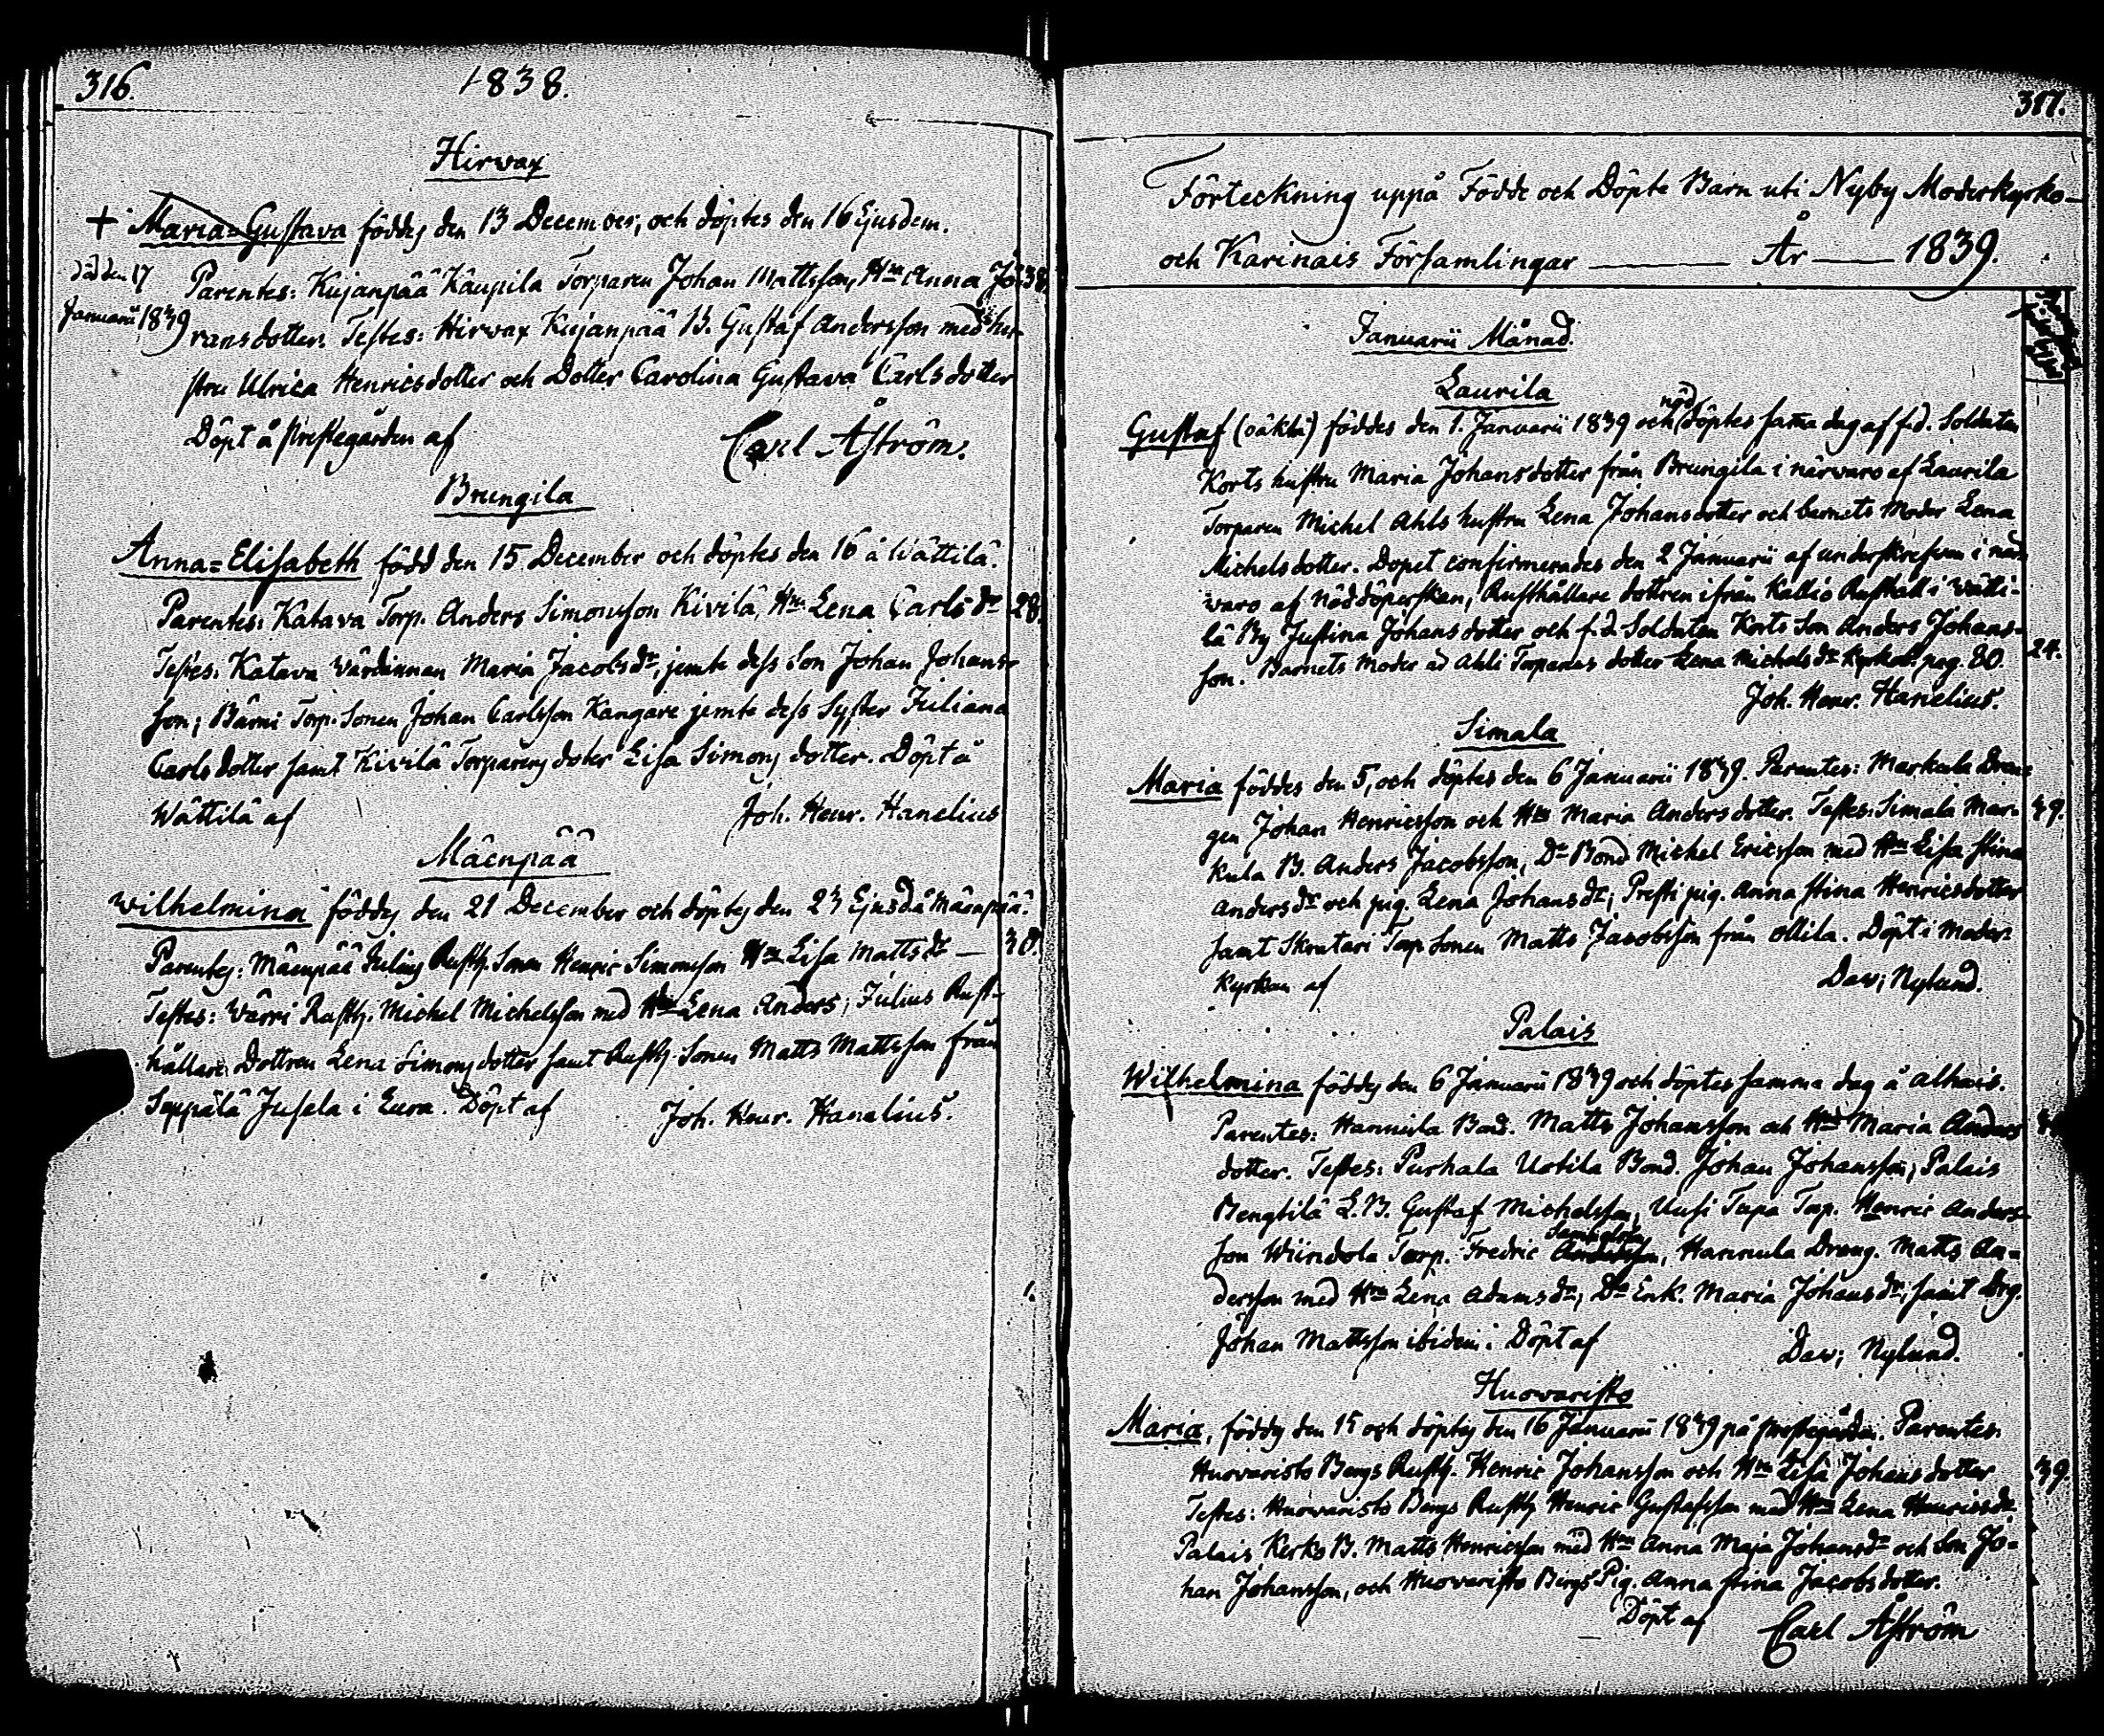 316.
1838.
Hirvax
+ Maria=Gustava föddes den 13 December, och döptes den 16 Ejusdem.
Död den 17
Januarii 1839
Parentes: Kujanpää Käupilä Torparen Johan Mattsson, Hru Anna Jö- 38.
ransdotter. Testes: Hirvax Kujanpää B. Gustaf Andersson med hu-
stru Ulrica Henricsdotter och Dotter Carolina Gustava Carlsdotter
Döpt å Prestegården af Carl Åström.
Brungila
Anna=Elisabeth född den 15 December och döptes den 16 å Wättilä.
Parentes: Katava Torp. Anders Simonsson Kivilä, Hru Lena Carlsdr 28.
Testes: Katava Värdinnan Maria Jacobsdr, jemte dess Son Johan Johans-
son; Bärni Torp. Sonen Johan Carlsson Kangare jemte dess Syster Juliana
Carlsdotter samt Kivilä Torparens doter Lisa Simons dotter. Döpt å
Wättilä af Joh. Henr. Hanelius
Mäenpää
Wilhelmina föddes den 21 December och döptes den 23 Ejusd å Mäenpää.
Parentes: Mäenpää Julius Rusth. Sonen Henric Simonsson Hru Lisa Mattsdr — 30.
Testes: Wärri Rusth. Michel Michelsson med Hru Lena Anders; Julius Rust-
hållare Dottren Lena Simons dotter samt Rusth. Sonen Matts Mattsson från
Seppälä Jusela i Eura. Döpt af Joh. Henr. Hanelius.
317.
Förteckning uppå Födde och Döpte Barn uti Nyby Moderkyrko-
och Karinais Församlingar — År — 1839.
Januarii Månad.
Laurila
Gustaf (oäkta) föddes den 1. Januarii 1839 och nöd döptes sama dag af f.d. Soldaten
Korts hustru Maria Johansdotter från Brungila i närvaro af Laurila
Torparen Michel Ahls hustru Lena Johansdotter och barnets Moder Lena
Michelsdotter. Dopet confirmerades den 2 Januarii af underskrefven i när-
varo af nöddöperskan, Rusthållare dottren ifrån Kallio Rusthåll i Wätti-
lä By Justina Johansdotter och f.d. Soldaten Korts Son Anders Johans- 24.
son. Barnets Moder är Ahli Torparens dotter Lena Michelsdr Kyrkob. pag. 80.
Joh. Henr. Hanelius.
Simala
Maria föddes den 5, och döptes den 6 Januarii 1839. Parentes: Markula Dren-
gen Johan Henricsson och Hru Maria Andersdotter. Testes: Simala Mar- 39.
kula B. Anders Jacobsson, Do Bond Michel Ericsson med Hru Lisa Stina
Andersdr och pig. Lena Johansdr; Presti pig. Anna Stina Henricsdotter
samt Skratari Torp Sonen Matts Jacobsson från Ollila. Döpt i Moder-
kyrkan af Dav; Nylund.
Palais
Wilhelmina föddes den 6 Januarii 1839 och döptes samma dag å Alhais.
Parentes: Hannula Bond. Matts Johansson och Hru Maria Anders
dotter. Testes: Purhala Uotila Bond. Johan Johansson; Palais
Bengtilä L.B. Gustaf Michelsson, Uusi Tupa Torp. Henric Anders-
son Wiindola Torp. Fredric, Hannula Dreng. Matts An-
dersson med Hru Lena Adamsdr; Do Enk. Maria Johansdr, samt drg.
Johan Mattsson ibidem. Döpt af Dav; Nylund.
Huovaristo
Maria, föddes den 15 och döptes den 16 Januarii 1839 på Prestegården. Parentes:
Huovaristo Bergs Rusth. Henric Johansson och Hru Lisa Johansdotter 39.
Testes: Huovaristo Bergs Rusth Henric Gustafsson med Hru Lena Henricsdr
Palais Kerko B. Matts Henricsson med Hru Anna Maja Johansdr och Son Jo-
han Johansson, och Huovaristo Bergs Pig. Anna Stina Jacobsdotter.
Döpt af Carl Åström